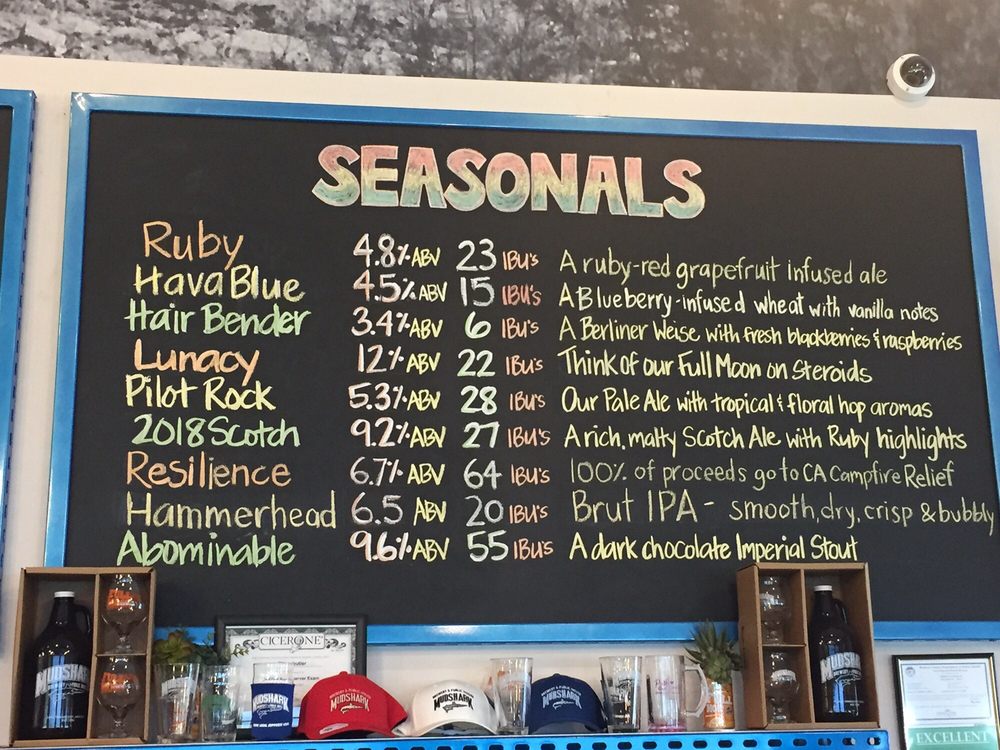 SEASONALS
Ruby 4.8% ABV 23 IBU's A ruby-red grapefruit infused ale
Hava Blue 4.5% ABV 15 IBU's A Blueberry-infused wheat with vanilla notes
Hair Bender 3.4% ABV 6 IBU's A Berliner Weise with fresh blackberries & raspberries
Lunacy 12% ABV 22 IBU's Think of our Full Moon on Steroids
Pilot Rock 5.3% ABV 28 IBU's Our Pale Ale with tropical & floral hop aromas
2018 Scotch 9.2% ABV 27 IBU's A rich, malty Scotch Ale with Ruby highlights
Resilience 6.7% ABV 64 IBU's 100% of proceeds go to CA Campfire Relief
Hammerhead 6.5 ABV 20 IBU's Brut IPA - smooth, dry, crisp & bubbly
Abominable 9.6% ABV 55 IBU's A dark chocolate Imperial Stout
CICERONE
MUDSHARK
MUDSHARK
MUDSHARK
MUDSHARK
EXCELLENT